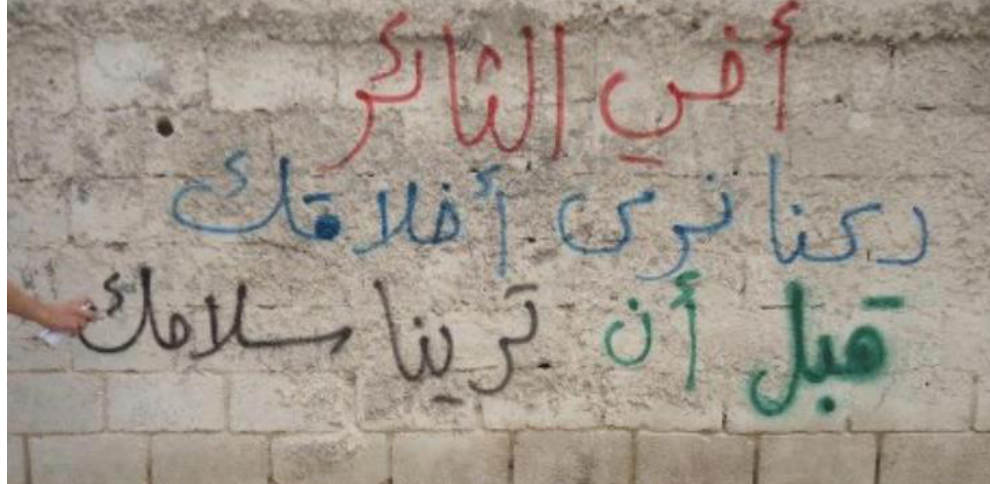 أخي الثائر
دعنا نرى أخلاقك
قبل أن ترينا سلاحك